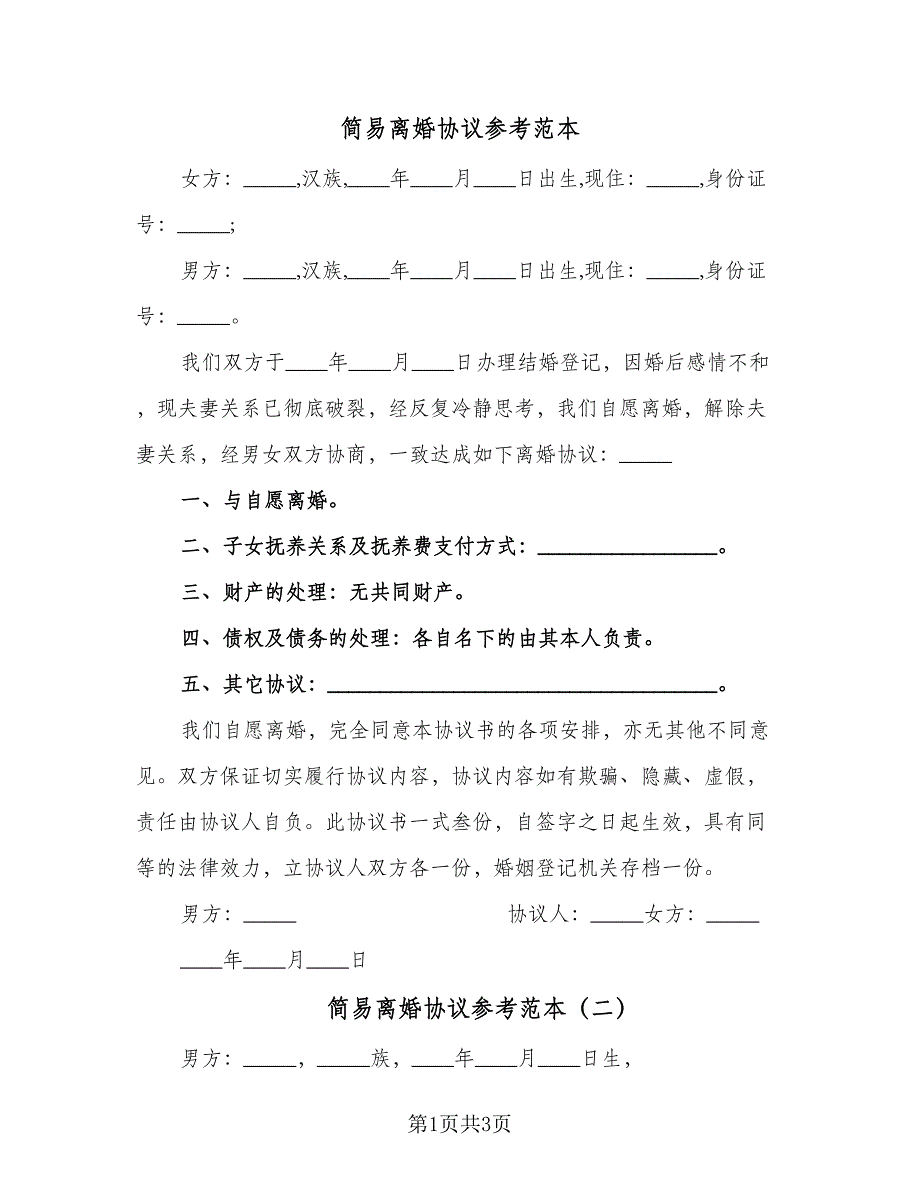 简易离婚协议参考范本
女方：_____,汉族,____年____月____日出生,现住：_____,身份证
号：_____;
男方：_____,汉族,____年____月____日出生,现住：_____,身份证
号：_____。
我们双方于____年____月____日办理结婚登记，因婚后感情不和
，现夫妻关系已彻底破裂，经反复冷静思考，我们自愿离婚，解除夫
妻关系，经男女双方协商，一致达成如下离婚协议：_____
一、与自愿离婚。
二、子女抚养关系及抚养费支付方式：_________________。
三、财产的处理：无共同财产。
四、债权及债务的处理：各自名下的由其本人负责。
五、其它协议：_____________________________________。
我们自愿离婚，完全同意本协议书的各项安排，亦无其他不同意
见。双方保证切实履行协议内容，协议内容如有欺骗、隐藏、虚假，
责任由协议人自负。此协议书一式叁份，自签字之日起生效，具有同
等的法律效力，立协议人双方各一份，婚姻登记机关存档一份。
男方：_____ 协议人：_____女方：_____
____年____月____日
简易离婚协议参考范本（二）
男方：_____，_____族，____年____月____日生，
第1页共3页